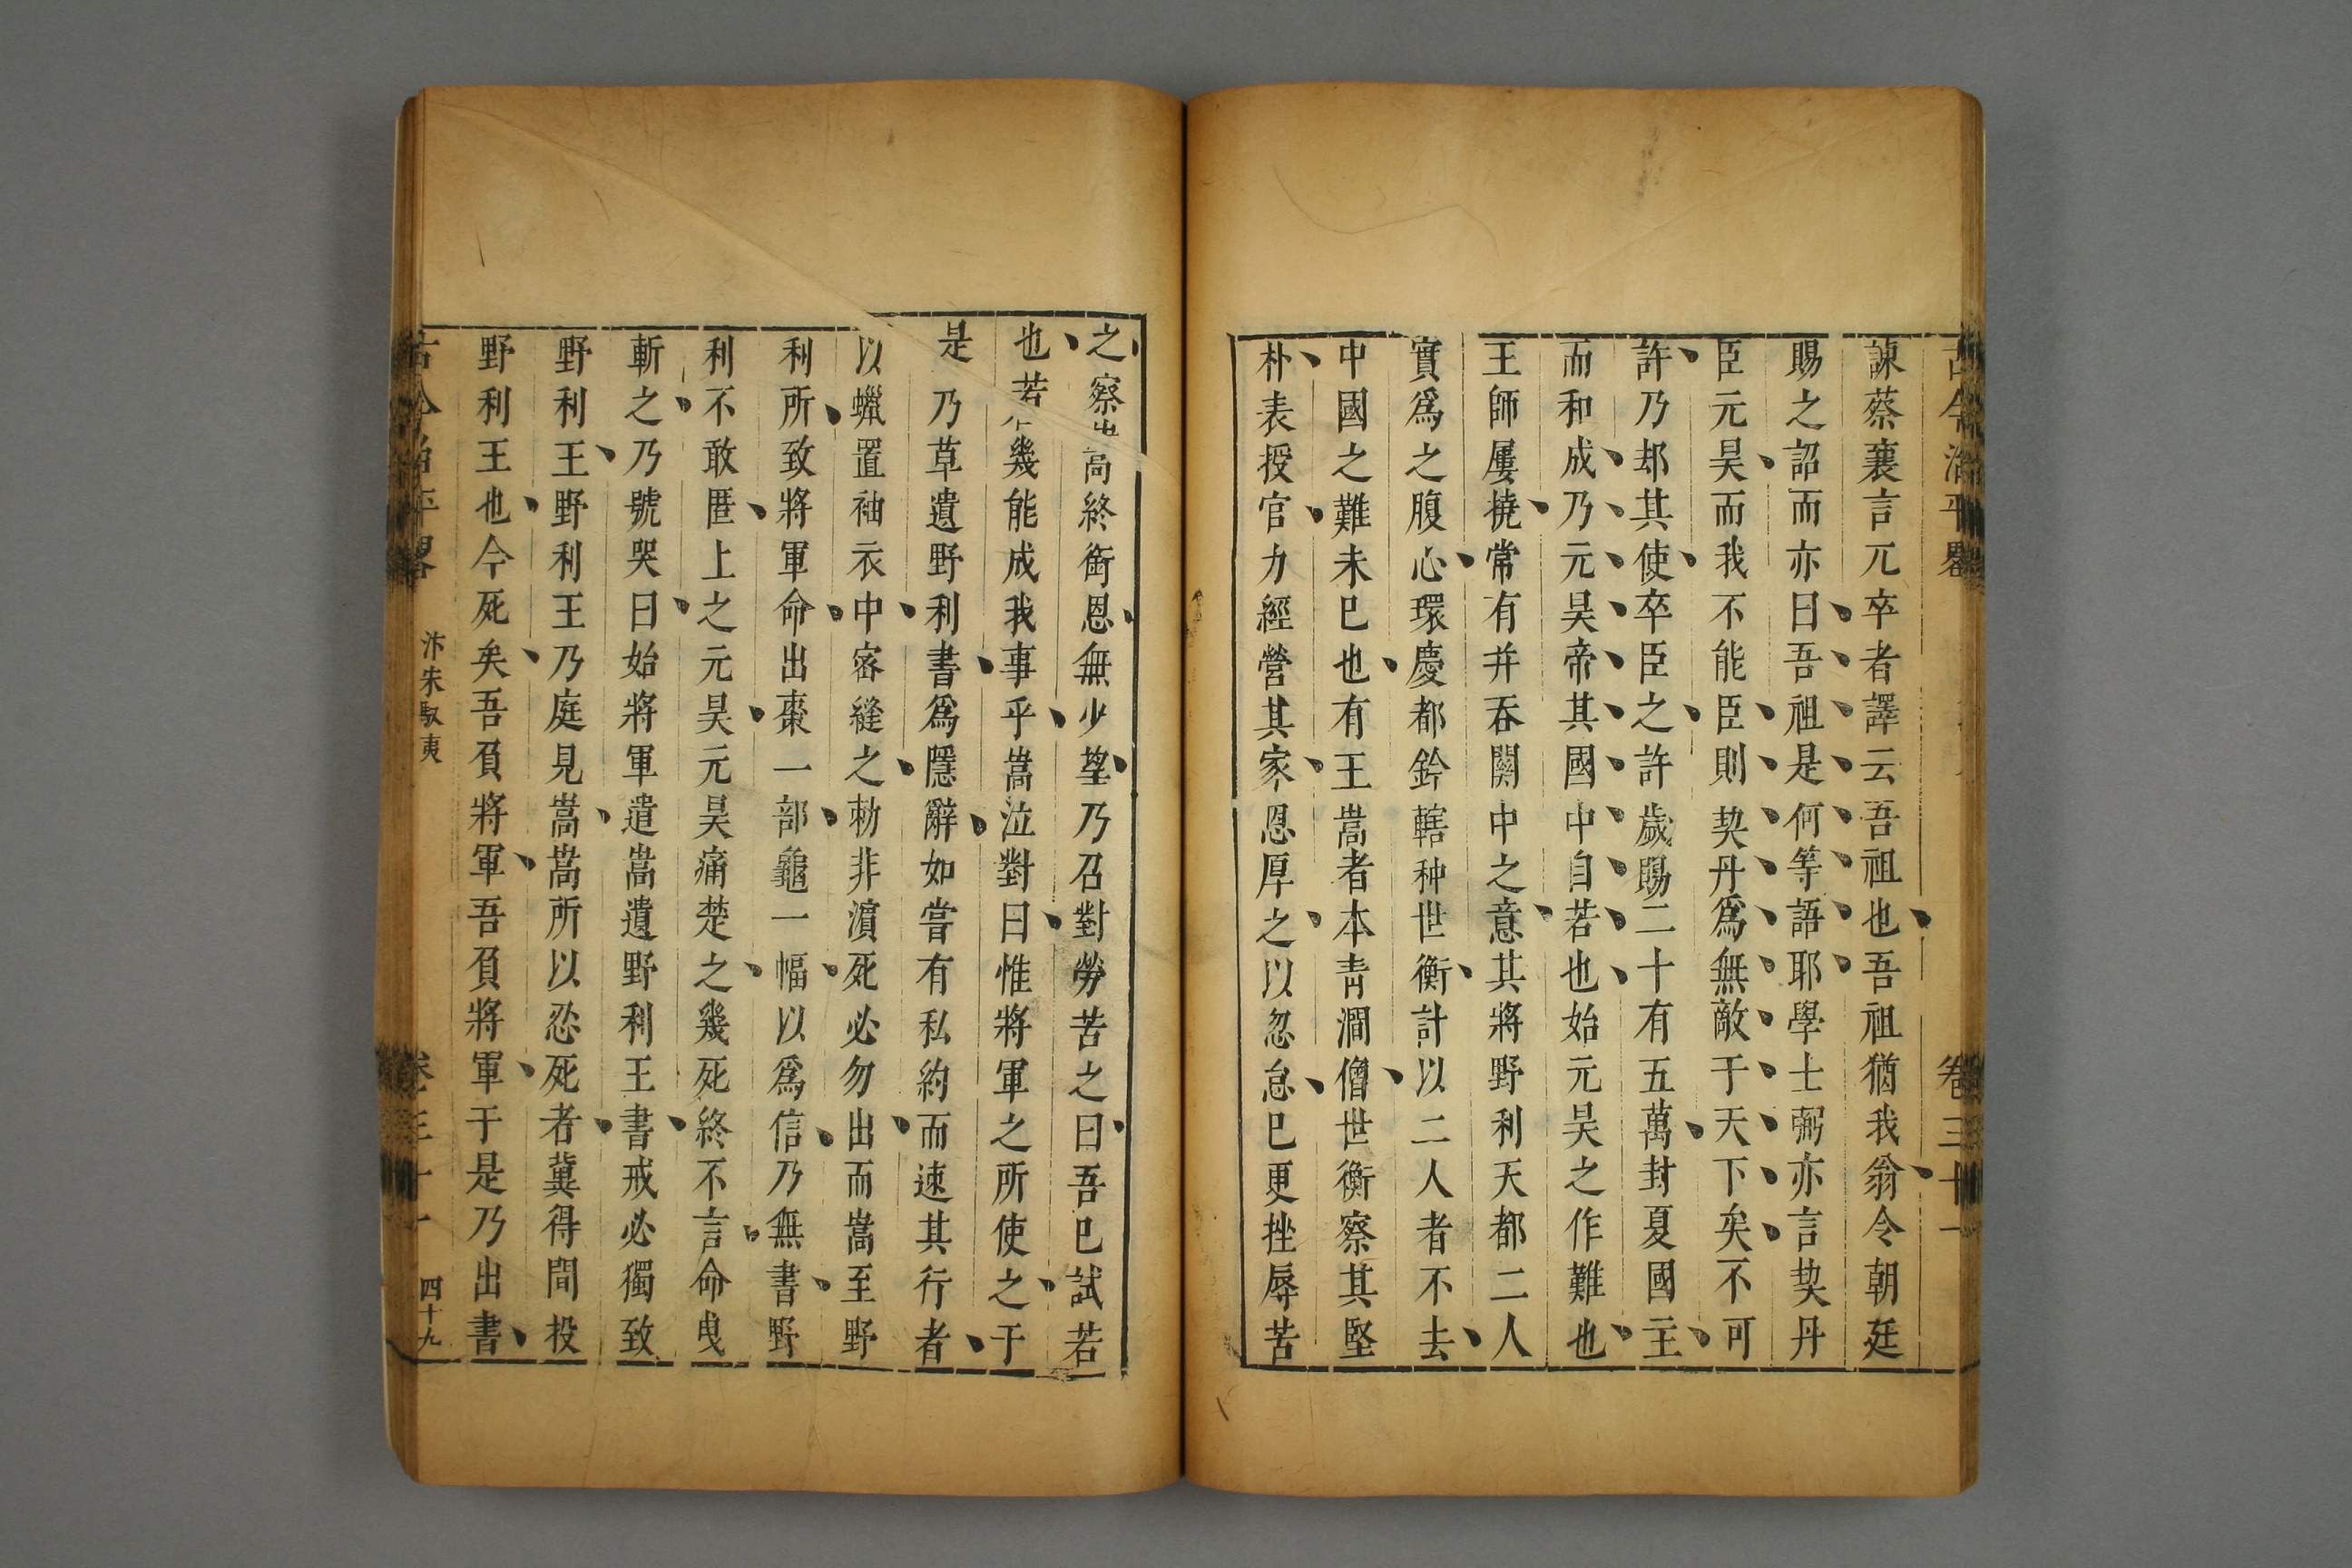 古今治平畧 卷三十一
諫蔡襄言兀卒者譯云吾祖也吾祖猶我翁今朝廷
賜之詔而亦曰吾祖是何等語耶學士弼亦言契丹
臣元昊而我不能臣則契丹爲無敵于天下矣不可
許乃却其使卒臣之許歲賜二十有五萬封夏國主
而和成乃元昊帝其國中自若也始元昊之作難也
王師屢撓常有并吞關中之意其將野利天都二人
實爲之腹心環慶都鈐轄种世衡計以二人者不去
中國之難未巳也有王嵩者本青澗僧世衡察其堅
朴表授官力經營其家恩厚之以忽怠巳更挫辱苦
之察嵩終銜恩無少望乃召對勞苦之曰吾巳試若
也若幾能成我事乎嵩泣對曰惟將軍之所使之于
是乃草遺野利書爲隱辭如嘗有私約而速其行者
以蠟置袖衣中宻縫之勅非濵死必勿出而嵩至野
利所致將軍命出棗一部龜一幅以爲信乃無書野
利不敢匿上之元昊元昊痛楚之幾死終不言命曳
斬之乃號哭曰始將軍遣嵩遺野利王書戒必獨致
野利王野利王乃庭見嵩嵩所以忍死者冀得間投
野利王也今死矣吾負將軍吾負將軍于是乃出書
古今治平畧 汴宋馭夷 卷三十一 四十九